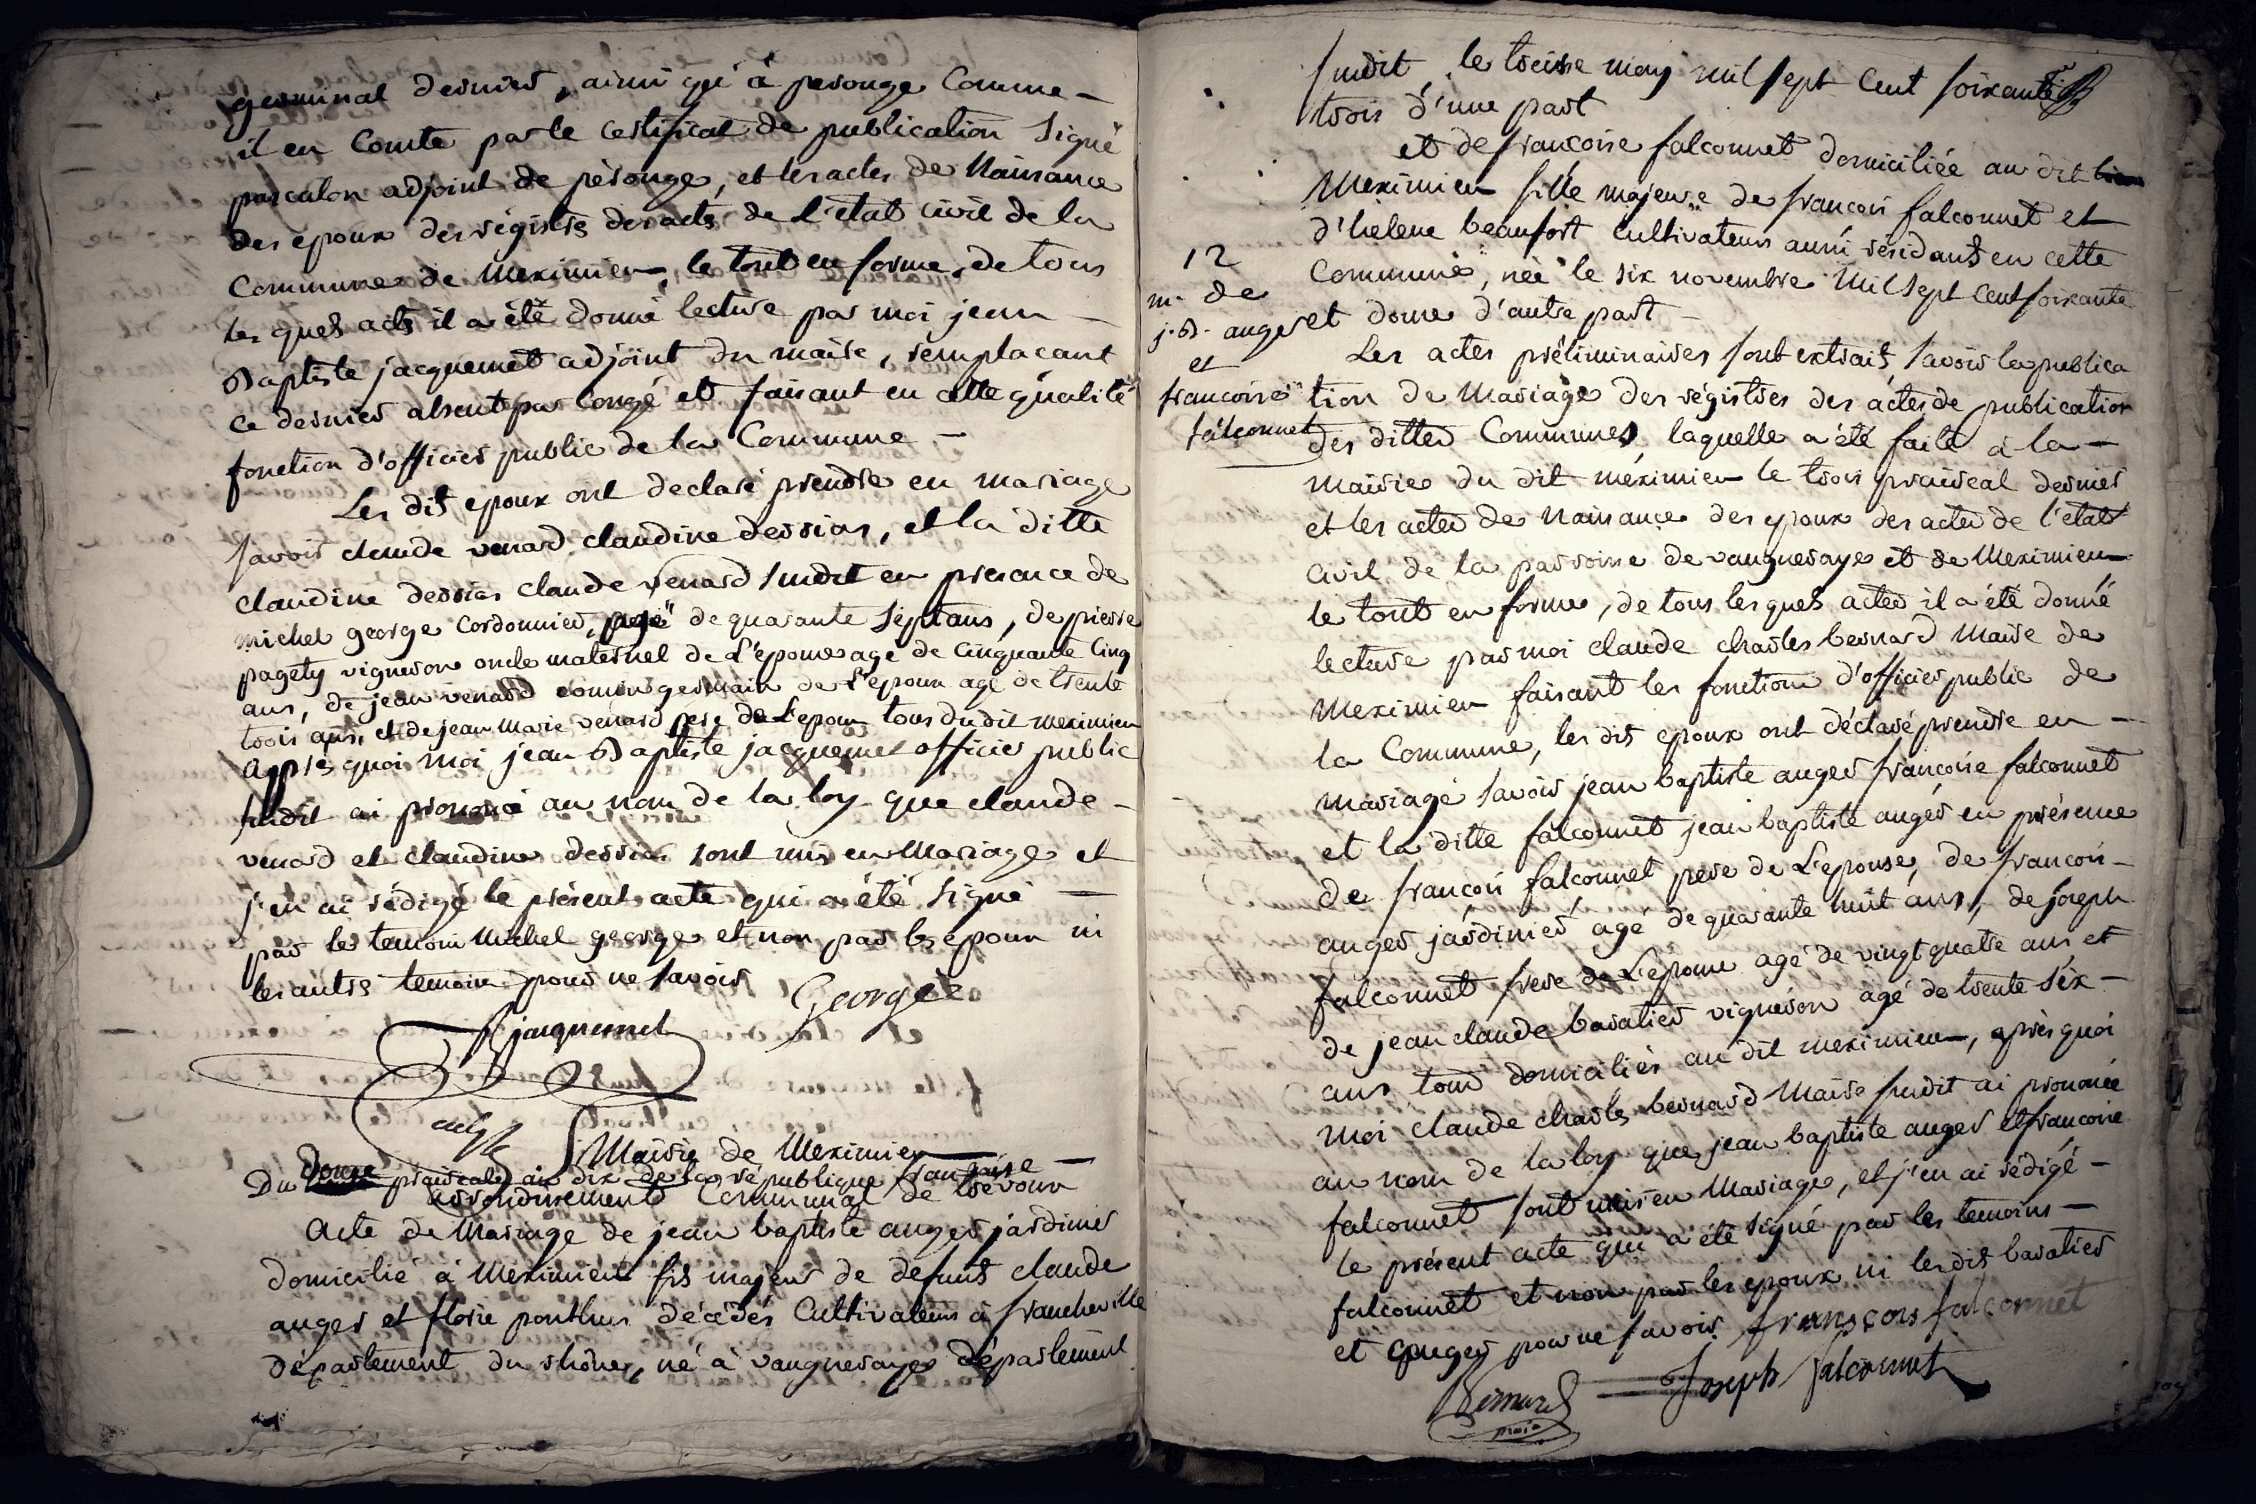 germinal dernier, ainsi qu'à perouge Comme –
il en Conste par le certificat de publication Signé
pascalon adjoint de pérouge, et les actes de Naissance
des epoux des régistres des actes de l'état civil de la
Commune de Meximieu, le tout en forme, de tous
les quels acts il a été donné lecture par moi jean –
Baptiste jacquemet adjoint du maire, remplaçant
ce dernier absent par Congé et faisant en cette qualité
fonction d'officier public de la Commune –
Les dits epoux ont declaré prendre en mariage
Savoir claude venard claudine dessias, et la ditte
claudine dessias claude venard Susdit en presence de
michel george Cordonnier, agé de quarante Sept ans, de pierre
pagety vigneron oncle maternel de L'epouse agé de Cinquante Cinq
ans, de jean venard cousin germain de L'epoux agé de trente
trois ans, et de jean Marie venard pere de L'epoux tous du dit meximieu
Après quoi moi jean Baptiste jacquemet officier public
susdit ai prononcé au nom de la loy que claude –
venard et claudine dessias sont unis en Mariage et
j'en ai rédigé le présent acte qui a été Signé –
par les temoin Michel george et non par les epoux ni
les autres temoins pour ne Savoir
George
jacquemet
adjt
Mairie de Meximieu
Du Douze prairial an dix de la république française –
arrondissement Communal de trévoux
Acte de Mariage de jean baptiste auger jardinier
domicilié à Meximieu fils majeur de defunts claude
auger et florie ponthus décédés Cultivateurs à francheville
département du rhône, né à vaugneraye département
susdit, le treise may mil Sept Cent Soixante
trois d'une part
et de françoise falconnet domiciliée au dit
Meximieu fille majeure de françois falconnet et
d'helene beaufort Cultivateurs aussi résidants en cette
Commune, née le six novembre Mil Sept Cent Soixante
et douze d'autre part –
12
m. de
j. B. auger
et
françoise
falconnet
Les actes préliminaires Sont extraits, Savoir la publica
tion de Mariage des régistres des actes de publication
des dittes Communes, laquelle a été faite à la –
Mairie du dit méximieu le trois prairéal dernier
et les actes de Naissance des epoux des actes de l'état
Civil de la parroisse de vaugneraye et de Meximieu
le tout en forme, de tous les quels actes il a été donné
lecture par moi claude charles bernard Maire de
Meximieu faisant les fonctions d'officier public de
la Commune, les dits epoux ont déclaré prendre en –
Mariage Savoir jean baptiste auger françoise falconnet
et la ditte falconnet jean baptiste auger en présence
de françois falconnet pere de L'epouse, de françois –
auger jardinier agé de quarante huit ans, de joseph
falconnet frere de L'epouse agé de vingt quatre ans et
de jean claude baratier vigneron agé de trente six –
ans tous domiciliés au dit meximieu, après quoi
Moi claude charles bernard Maire susdit ai prononcé
au nom de la loy que jean baptiste auger et françoise
falconnet sont unis en Mariage, et j'en ai rédigé –
le présent acte qui a été signé par les temoins –
falconnet et non par les epoux ni les dits baratier
et auger pour ne Savoir françois falconnet
Joseph falconnet
Bernard
maire